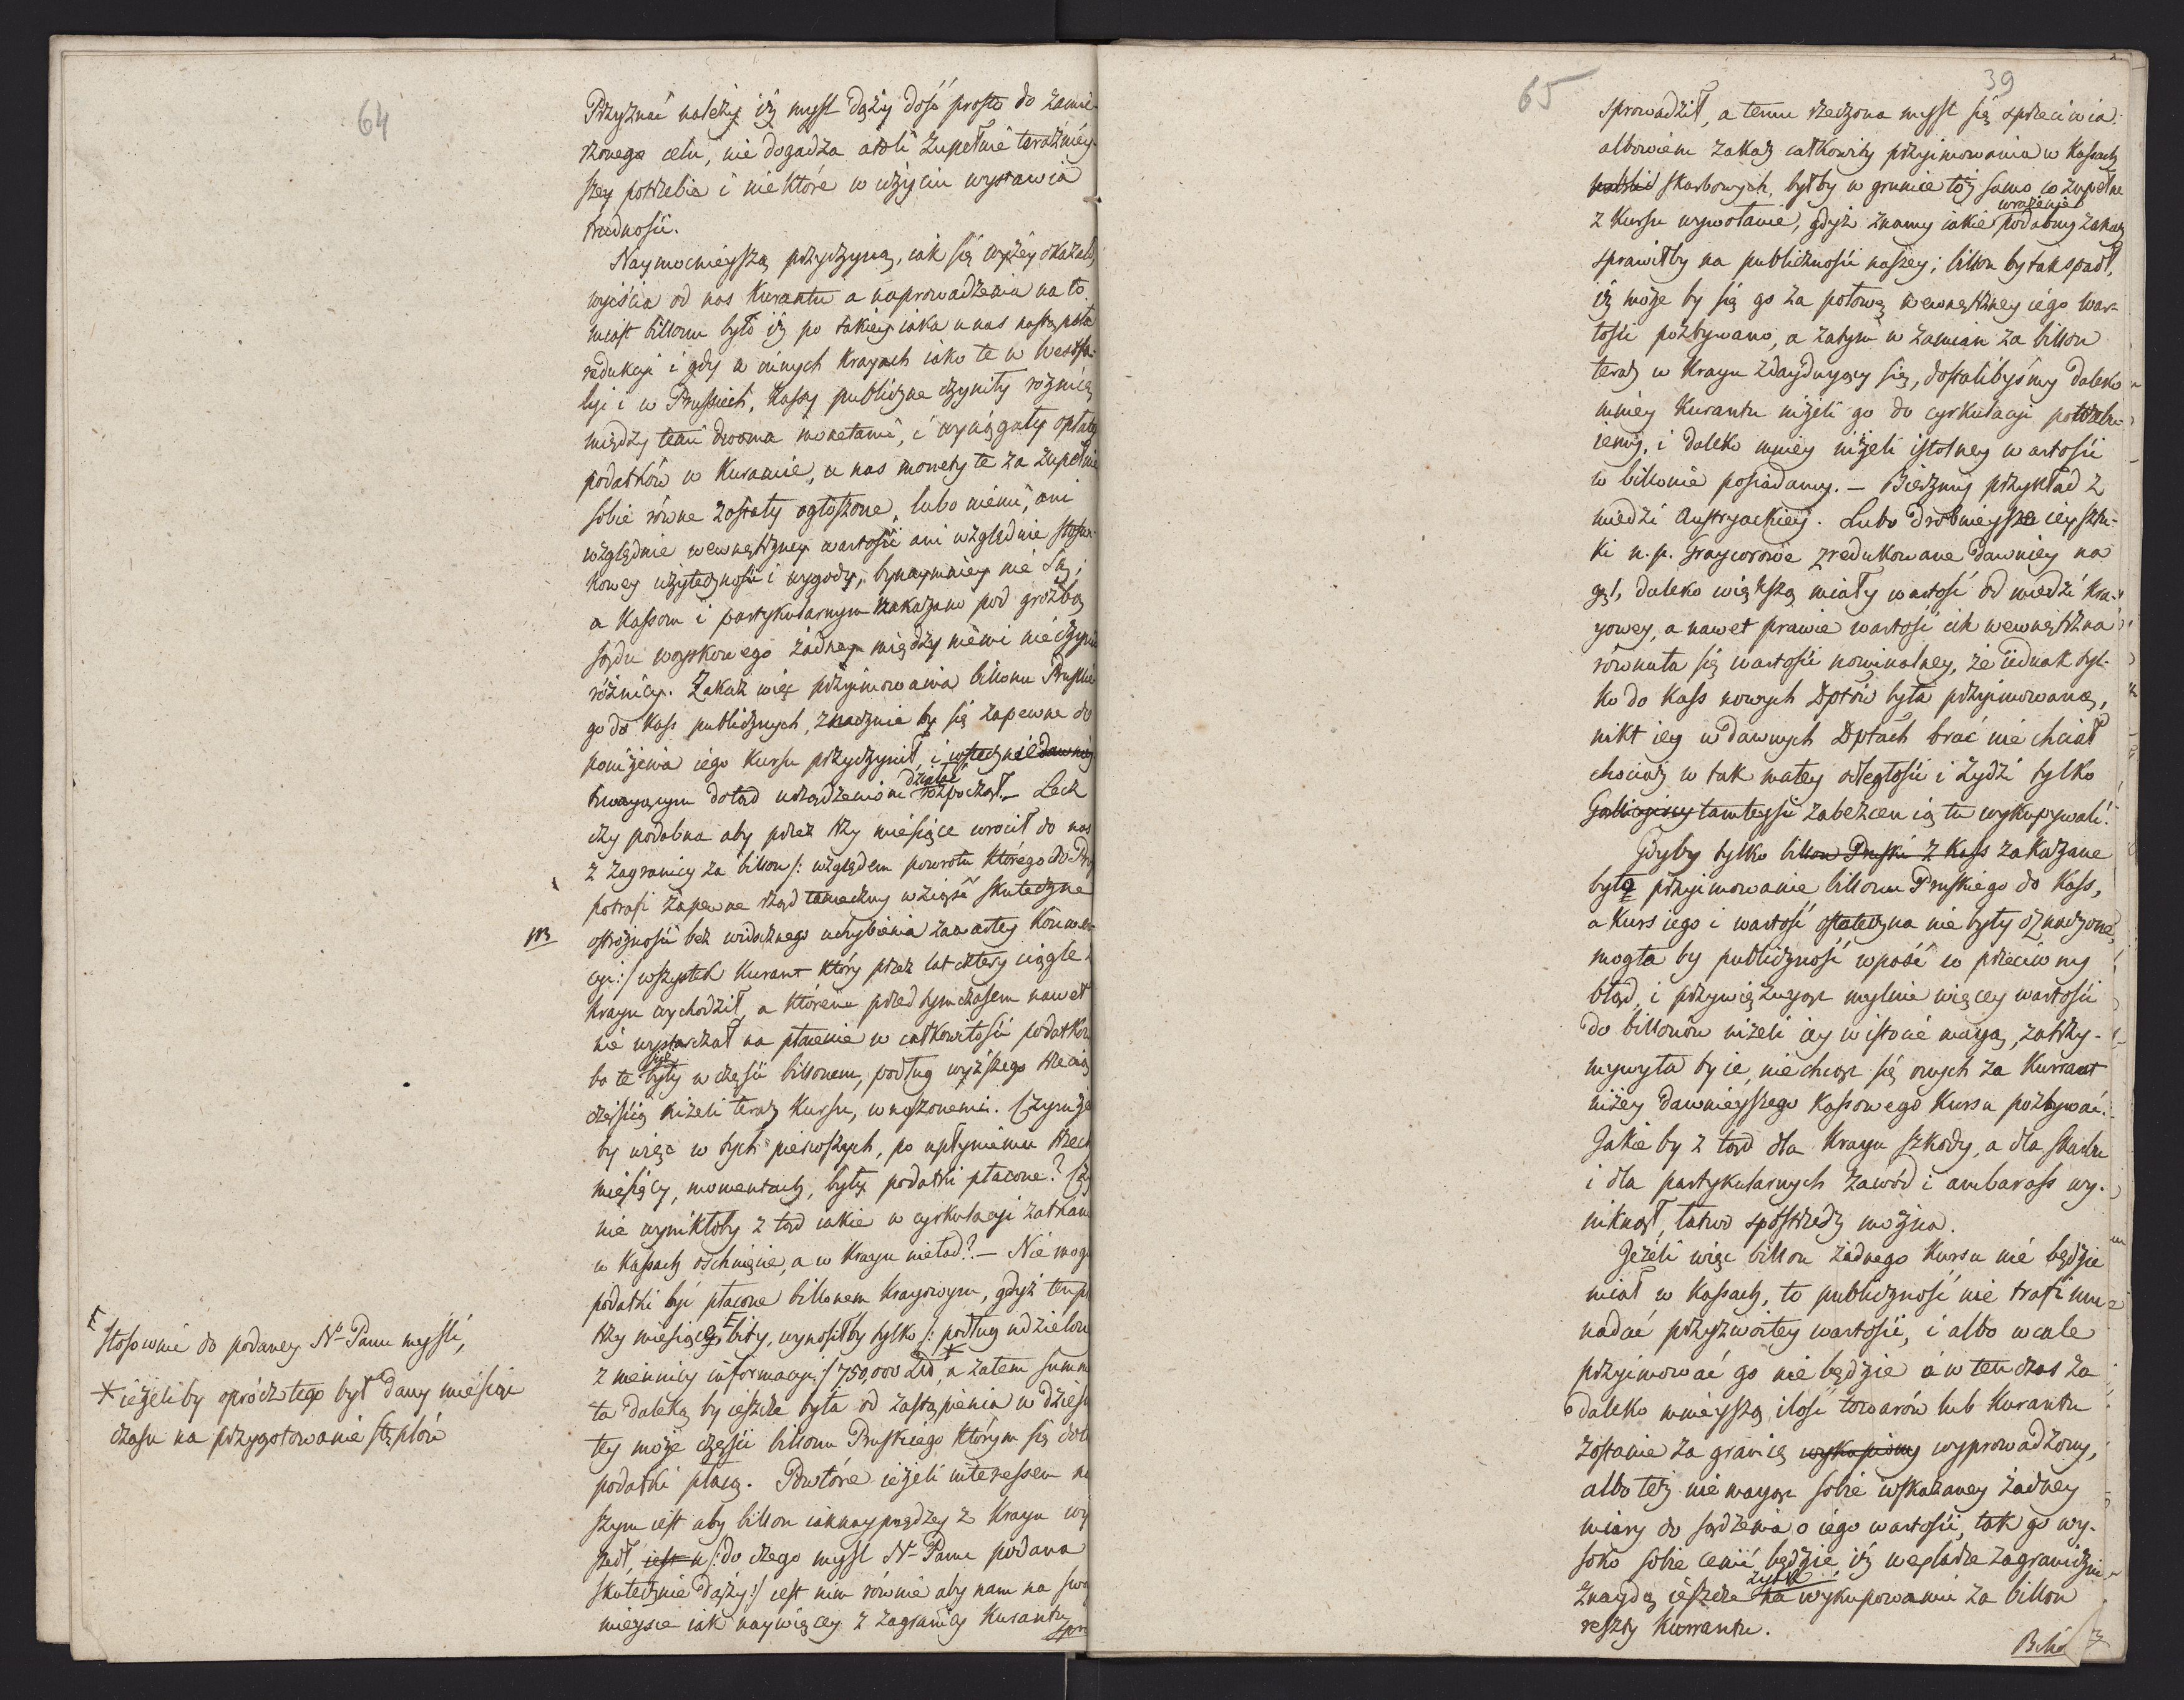 64
Przyznać należy iż mysl dąży dość prosto do zamie-
rzonego celu, nie dogadza atoli zupełnie teraźniéy-
szey potrzebie i niektóre w użyciu wystawia
trudności.
Naymocnieyszą przyczyną, iak się wyżéy okazało,
wyiścia od nas Kurantu a naprowadzenia na to
miast billonu było iż po takiey iaka u nas nastąpiła
redukcji i gdy w innych Kraiach iako te w Westfa-
lyi i w Prusiech, Kassy publiczne czyniły roznicę
między temi dwoma monetami, i wyciągały opłaty
podatków w Kurancie, u nas monety te za zupełnie
sobie równe zostały ogłoszone, lubo niemi, ani
względnie wewnętrzney wartości ani względnie stosun-
kowey użyteczności i wygody, bynaymniey nie są;
a Kassom i partykularnym zakazano pod groźbą
sądu woyskowego żadney między niemi nie czynić
różnicy. Zakaz więc przyimowania billonu Pruskie-
go do Kass publicznych, znacznie by się zapewne do
poniżenia iego Kursu przyczynił, i wstecznie dawniey
działać
trwaiącym dotąd urządzeniom rozpoczął. – Lecz
czy podobna aby przez trzy miesiące wrócił do nas
z zagranicy za billon /: względem powrotu którego do Prus
potrafi zapewne rząd tameczny wziąść skuteczne
m
ostrożności bez widocznego uchybienia zawartey Konwen-
cyi :/ wszystek Kurant który przez lat cztery ciągle z
Kraju wychodził, a któren przed tym czasem nawet
nie wystarczał na płacenie w całkowitości podatków
bo te były w części billonem, podług wyższego trzecią
częścią niżeli teraz Kursu, wnoszonemi. Czymże
by więc w tych pierwszych, po upłynieniu trzech
miesięcy, momentach, były podatki płacone? Czy
nie wynikłoby z tąd iakie w cyrkulacji zatkanie
w Kassach oschnięcie, a w Kraju nieład? – Nie mogą
podatki być płacone billonem Kraiowym, gdyż ten przez
trzy miesiące Ϝ bity, wynosiłby tylko /: podług udzieloney
z mennicy informacji :/ 750,000 Złt * a zatem summa
ta daleką by ieszcze była od zastąpienia w dziesią-
tey może części billonu Pruskiego którym się dotąd
podatki płacą. Powtóre ieżeli interessem na-
szym iest aby billon iaknayprędzey z Kraju wy-
szedł, iest n /: do czego mysl Nº Panu podana
skutecznie dąży :/ iest nim równie aby nam na swoie
mieysce iak naywięcey z zagranicy Kurantu
spro
Ϝ stosownie do podaney Nº Panu mysli,
* ieżeliby oprócz tego był dany miesiąc
czasu na przygotowanie stęplów
65
39
sprowadził, a temu rzeczona mysl się sprzeciwia:
albowiem zakaz całkowity przyimowania w Kassach
skarbowych, byłby w gruncie toż samo co zupełne
wrażenie
z Kursu wywołanie, gdyż znamy iakie podobny zakaz
sprawiłby na publiczności naszey; billon by tak spadł,
iż może by się go za połowę wewnętrzney iego war-
tości pozbywano, a zatym w zamian za billon
teraz w Kraju znayduiący się, dostalibyśmy daleko
mniey Kurantu niżeli go do cyrkulacji potrzebu-
iemy, i daleko mniey niżeli istotney wartości
w billonie posiadamy. – Bierzmy przykład z
miedzi Austryackiey. Lubo drobnieysze iey sztu-
ki n. p. Graycarowe zredukowane dawniey na
gr 1, daleko większą miały wartość od miedzi Kra-
jowey, a nawet prawie wartość ich wewnętrzna
równała się wartości nominalney, że iednak tyl-
ko do Kass nowych Dptów była przyimowaną,
nikt iey w dawnych Dptach brać nie chciał
chociaż w tak małey odległości i Żydzi tylko
Gallicyiscy tamteysi za bezcen ią tu wykupywali.
Gdyby tylko billon Pruski z Kass zakazane
było przyimowanie billonu Pruskiego do Kass,
a Kurs iego i wartość ostateczna nie były oznaczone,
mogła by publiczność wpaść w przeciwny
błąd, i przywiązuiąc mylnie więcey wartości
do billonów niżeli iey w istocie maią, zatrzy-
mywała by ie, nie chcąc się onych za Kurrant
niżey dawnieyszego Kassowego Kursu pozbywać.
Jakie by z tąd dla Kraju szkody, a dla skarbu
i dla partykularnych zawód i ambaras wy-
niknął, łatwo spostrzedz można.
Jeżeli więc billon żadnego Kursu nie będzie
miał w Kassach, to publiczność nie trafi mu
nadać przyzwoitey wartości, i albo wcale
przyimować go nie będzie a w ten czas za
daleko mnieyszą ilość towarów lub Kurantu
zostanie za granicę wykupiony wyprowadzony,
albo też nie maiąc sobie wskazaney żadney
miary do sądzenia o iego wartości, tak go wy-
soko sobie cenić będzie iż wexlarze zagraniczni
zysk
znaydą ieszcze na wykupowaniu za billon
reszty Kurrantu.